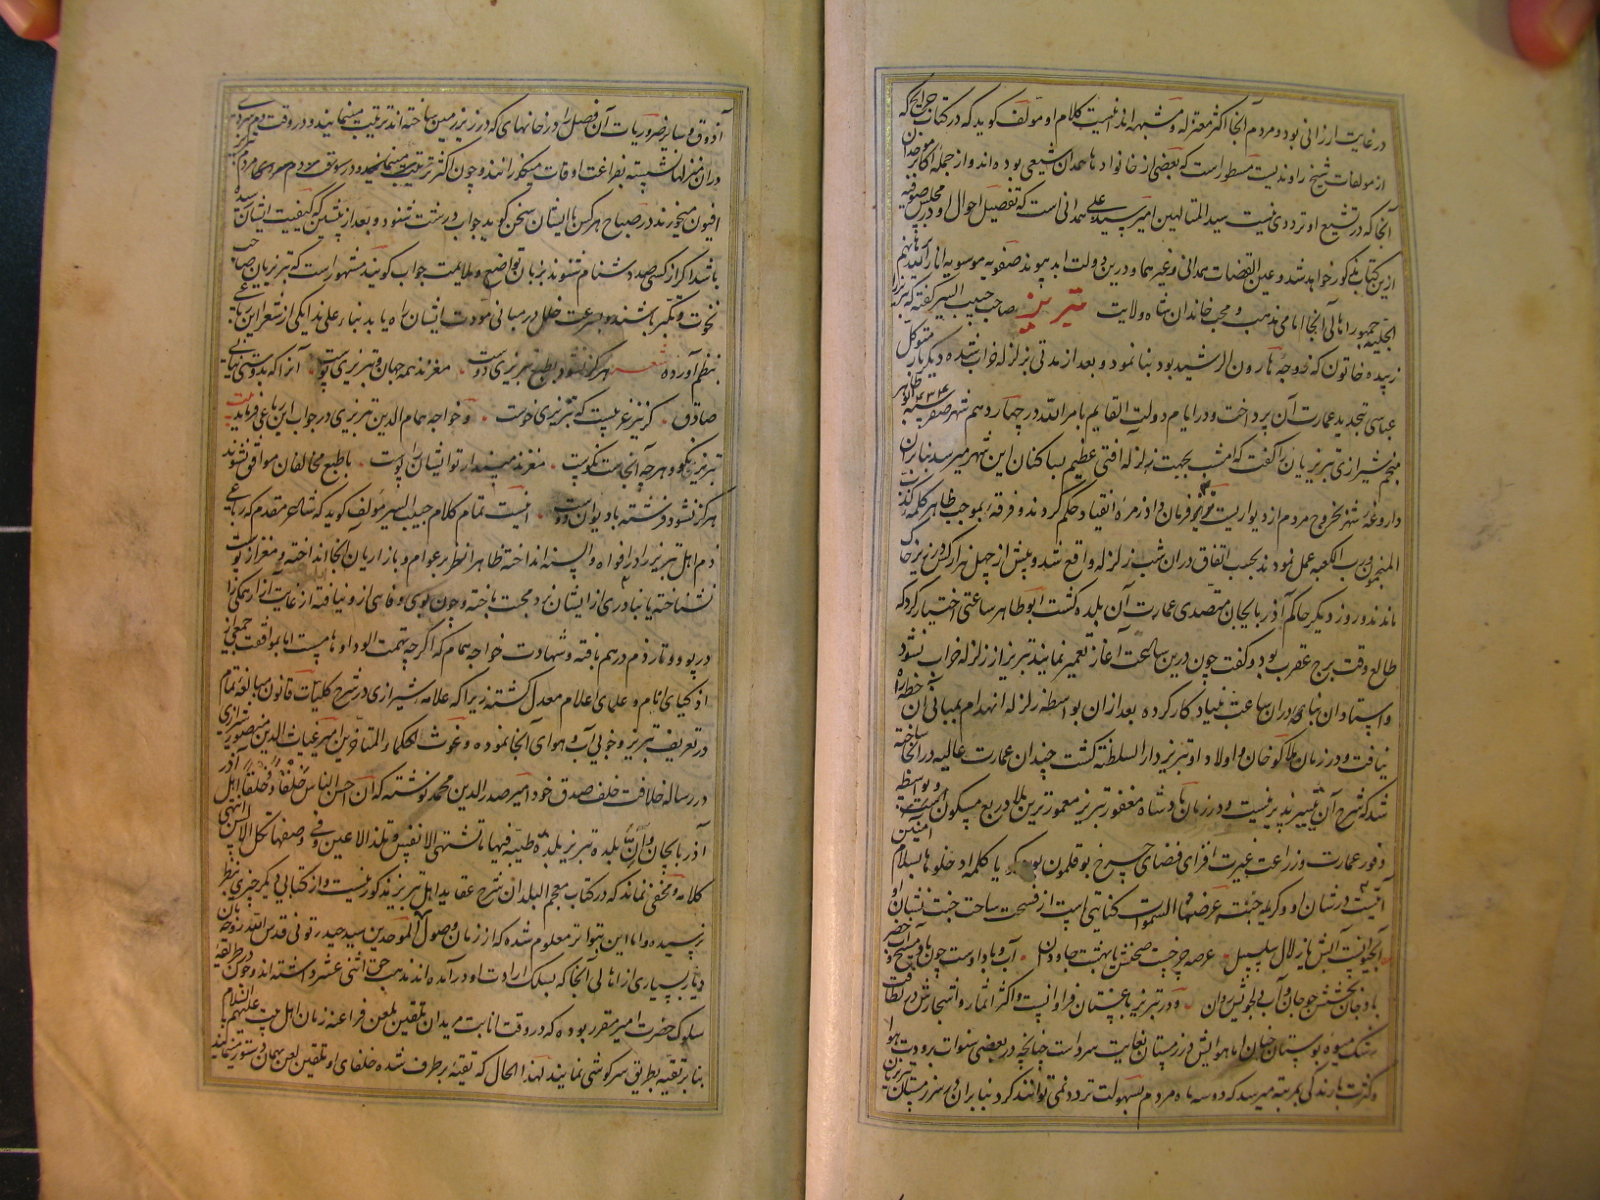 در غایت ارزانی بود و مردم آنجا اکثر معتزله و مشبهه اند انیست کلام او مولف کوید که در کتاب خرایج که
از مولفات شیخ راوندیست مسطور است که بعضی از خانوادهاء همدان شیعی بوده اند و از جمله اکابر موحدان
آنجا که در تشیع او ترددی نیست سید المتالهین امیر سید علی همدانی است که تفصیل احوال او در مجلس صوفیه
ازین کتاب مذکور خواهد شد و عین القضات همدانی و غیرهما و درین دولت ابد پیوند صفویه موسویه انار الله برهانهم
الجلیه جمهور اهالی آنجا امامی مذهب و محب خاندان شاه ولایت تبریز صاحب حبیب السیر کفته که تبریز را
زبیده خاتون که زوجه هارون الرشید بود بنا نمود و بعد از مدتی بزلزله خراب شده دیکر بار متوکل
عباسی تجدید عمارت آن پرداخت و در ایام دولت القایم بامر الله در چهاردهم شهر صفر سنه ۴۳۴ ابو طاهر
منجم شیرازی تبریزیان را کفت که امشب بجهت زلزله آفتی عظیم بساکنان این شهر میرسد بنابران
داروغه شهر بخروج مردم از دیواربست تبریز فرمان داد زمره انقیاد حکم کردند و فرقه بموجب ظاهر کلمه کذب
المنجمون برب الکعبه عمل نمودند بحسب اتفاق دران شب زلزله واقع شد و بیش از چهل هزار کس در زیر خاک
ماندند و روز دیکر حاکم آذربایجان متصدی عمارت آن بلده کشت ابو طاهر ساعتی اختیار کرد که
طالع وقت برج عقرب بود و کفت چون درین ساعت آغاز تعمیر نمایند تبریز از زلزله خراب نشود
و استادان بنا دران ساعت بنیاد کار کرده بعد ازان بواسطه زلزله انهدام بمبانی آن خطه راه
نیافت و در زمان هلاکو خان و اولاد او تبریز دار السلطنه کشت چندان عمارت عالیه در آنجا ساخته
شد که شرح آن تیسیر پذیر نیست و در زمان پادشاه مغفور تبریز معمورترین بلاد ربع مسکون است و بواسطه
وفور عمارت و زراعت غیرت افزای فضای چرخ بوقلمون بود کویا کلمه ادخلوها بسلام آمنین
آیتیست در شان او و کریمه جنة عرضها السموات کنایتی است از فسحت ساحت جنت نشان او
آنچه یافت آبش باز لال سلسبیل عرصه چو جنت صحنش با بهشت جاودان آب و باد اوست چون باد مسیح و آب خضر
باد جان بخشش چو جان و آب دلجویش روان و در تبریز باغستان فراوانست و اکثر اثمار و اشجارش در لطافت
رشک میوه بوستان جنان اما هوایش در زمستان بغایت سرد است چنانچه در بعضی سنوات برودت هوا
و کثرت بارندکی بمرتبه میرسد که دو سه ماه مردم بسهولت تردد نمی توانند کرد بنابران در سر زمستان تبریزیان
آذوق و سایر ضروریات آن فصل را در خانهای که در زیر زمین ساخته اند ترتیب مینمایند و در وقت
دران منزلها نشسته بفراغت اوقات میکذرانند و چون اکثر مردم تبریز
افیون میخورند در صباح هر کس با ایشان سخن کوید جواب درشت شنود و بعد از پیشین که کیفیت ایشان رسیده
باشد اکر از کسی صد دشنام شنوند بزبان تواضع و ملایمت جواب کویند مشهور است که تبریزیان صاحب
نخوت و تکبر باشند و بسرعت خلل در مبانی مودت ایشان راه یابد بناء علی هذا یکی از شعرا این رباعی
بنظم آورده شعر هرکز نشود بطبع تبریزی دوست مغزند همه جهان و تبریزی پوست آنرا که بدوستی نیابی
صادق کر نیز غریبست که تبریزی خوست و خواجه همام الدین تبریزی در جواب این رباعی فرماید بیت
تبریز نکو و هرچه آنجاست نکوست مغزند مپندار تو ایشان را پوست با طبع مخالفان موافق نشوند
هرکز نشود فرشته با دیوان دوست انیست تمام کلام حبیب السیر مولف کوید که شاعر متقدم که رباعی
ذم اهل تبریز را در افواه و السنه انداخته ظاهرا نظر بر عوام و بازاریان آنجا انداخته و مغز از پوست
نشناخته یا بنا دری از ایشان نرد محبت باخته و چون بوی وفا ازو نیافته از غایت آزردکی را
در پود و تار ذم درهم بافته و شهادت خواجه همام که اکرچه بتهمت آلود او هاست اما بموافقت جمعی از
اذکیای انام و علمای اعلام معدل کشته زیرا که علامه شیرازی در شرح کلیات قانون مبالغه تمام
در تعریف تبریز و خوبی آب و هوای آنجا نموده و غوث الحکما المتاخرین امیر غیاث الدین منصور شیرازی
در رساله خلافت خلف صدق خود امیر صدر الدین محمد نوشته که ان احسن الناس خلقا و خلقا اهل آذر
آذربایجان و ان بلده تبریز بلدة طیبة فیها ما تشتهی الانفس و تلذ الاعین و فی وصفها تکل الالسن انتهی
کلامه و مخفی نماند که در کتاب معجم البلدان شرح عقاید اهل تبریز مذکور نیست و از کتابی دیکر چیزی بنظر
نرسیده و اما این بتواتر معلوم شده که از زمان وصول الموحدین سید حیدر تونی قدس الله روحه بان
دیار بسیاری از اهالی آنجا که بسلک ارادت او درآمده اند مذهب حق اثنی عشر داشته اند و چون در طریقه
سلوک حضرت امیر مقرر بوده که در وقت انابت مریدان تلقین بلعن فراعنه زمان اهل بیت علیهم السلام
بنا بر تقیه بطریق سرکوشی نمایند لهذا الحال که تقیه برطرف شده خلفای او تلقین لعن بهمان دستور مینمایند